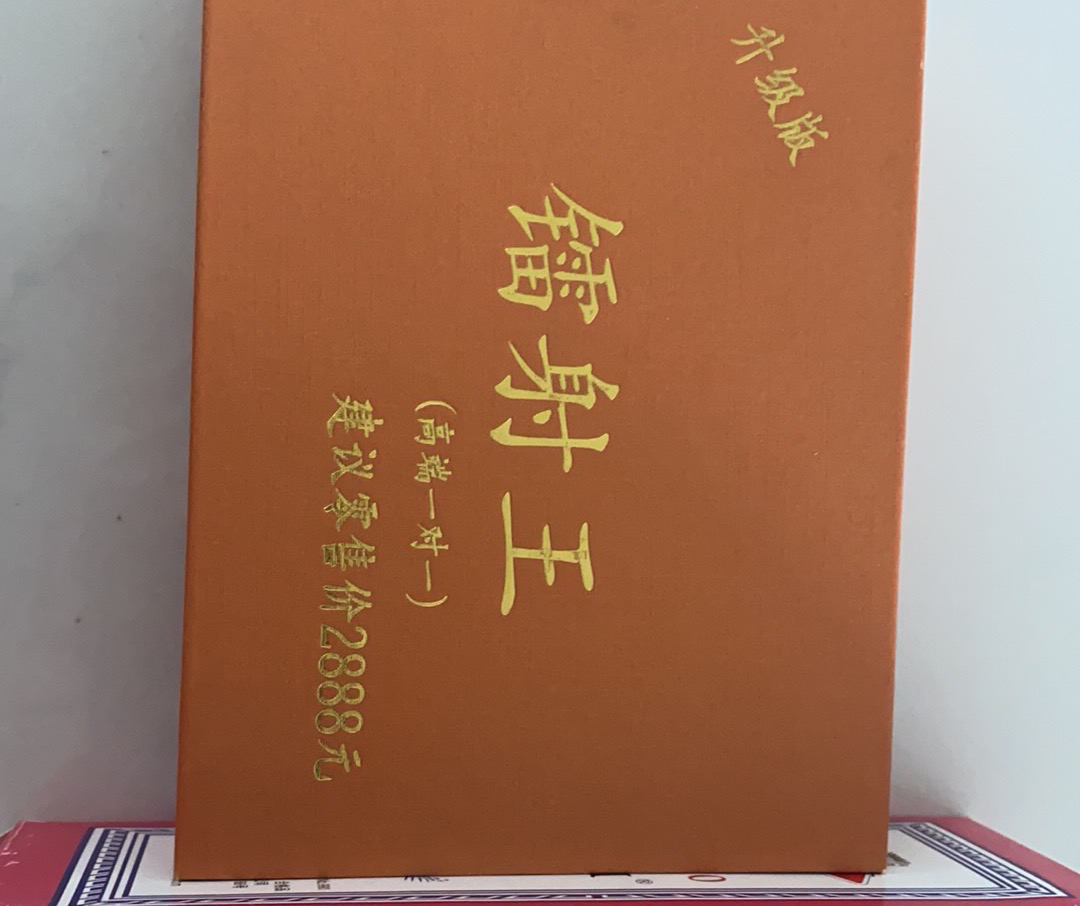 升级版
镭射王
（高端一对一）
建议零售价2888元